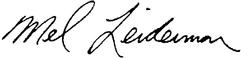 Mel Leiderman